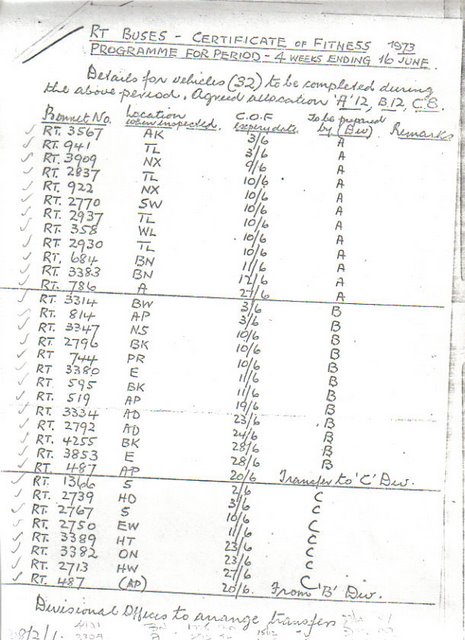 RT BUSES - CERTIFICATE OF FITNESS 1973
PROGRAMME FOR PERIOD - 4 WEEKS ENDING 16 JUNE.
Details for vehicles (32) to be completed during
the above period. Agreed allocation 'A' 12, B.12, C.8.
Bonnet No. Location when inspected. C.O.F expiry date To be prepared by (Div) Remarks
RT. 3567 AK 3/6 A
RT. 941 TL 3/6 A
RT. 3909 NX 9/6 A
RT. 2837 TL 10/6 A
RT. 922 NX 10/6 A
RT. 2770 SW 10/6 A
RT. 2937 TL 10/6 A
RT. 358 WL 10/6 A
RT. 2930 TL 10/6 A
RT. 684 BN 11/6 A
RT. 3383 BN 12/6 A
RT. 786 A 27/6 A
RT. 3314 BW 3/6 B
RT. 814 AP 3/6 B
RT. 3347 NS 10/6 B
RT. 2796 BK 10/6 B
RT 744 PR 10/6 B
RT. 3380 E 11/6 B
RT. 595 BK 11/6 B
RT. 519 AP 19/6 B
RT. 3334 AD 23/6 B
RT. 2792 AD 24/6 B
RT. 4255 BK 28/6 B
RT. 3853 E 28/6 B
RT. 487 AP 20/6 Transfer to 'C' Div.
RT. 1366 S 2/6 C
RT. 2739 HD 3/6 C
RT. 2767 S 10/6 C
RT. 2750 EW 11/6 C
RT. 3389 HT 23/6 C
RT. 3382 ON 23/6 C
RT. 2713 HW 27/6 C
RT. 487 (AP) 20/6 From 'B' Div.
Divisional Offices to arrange transfers